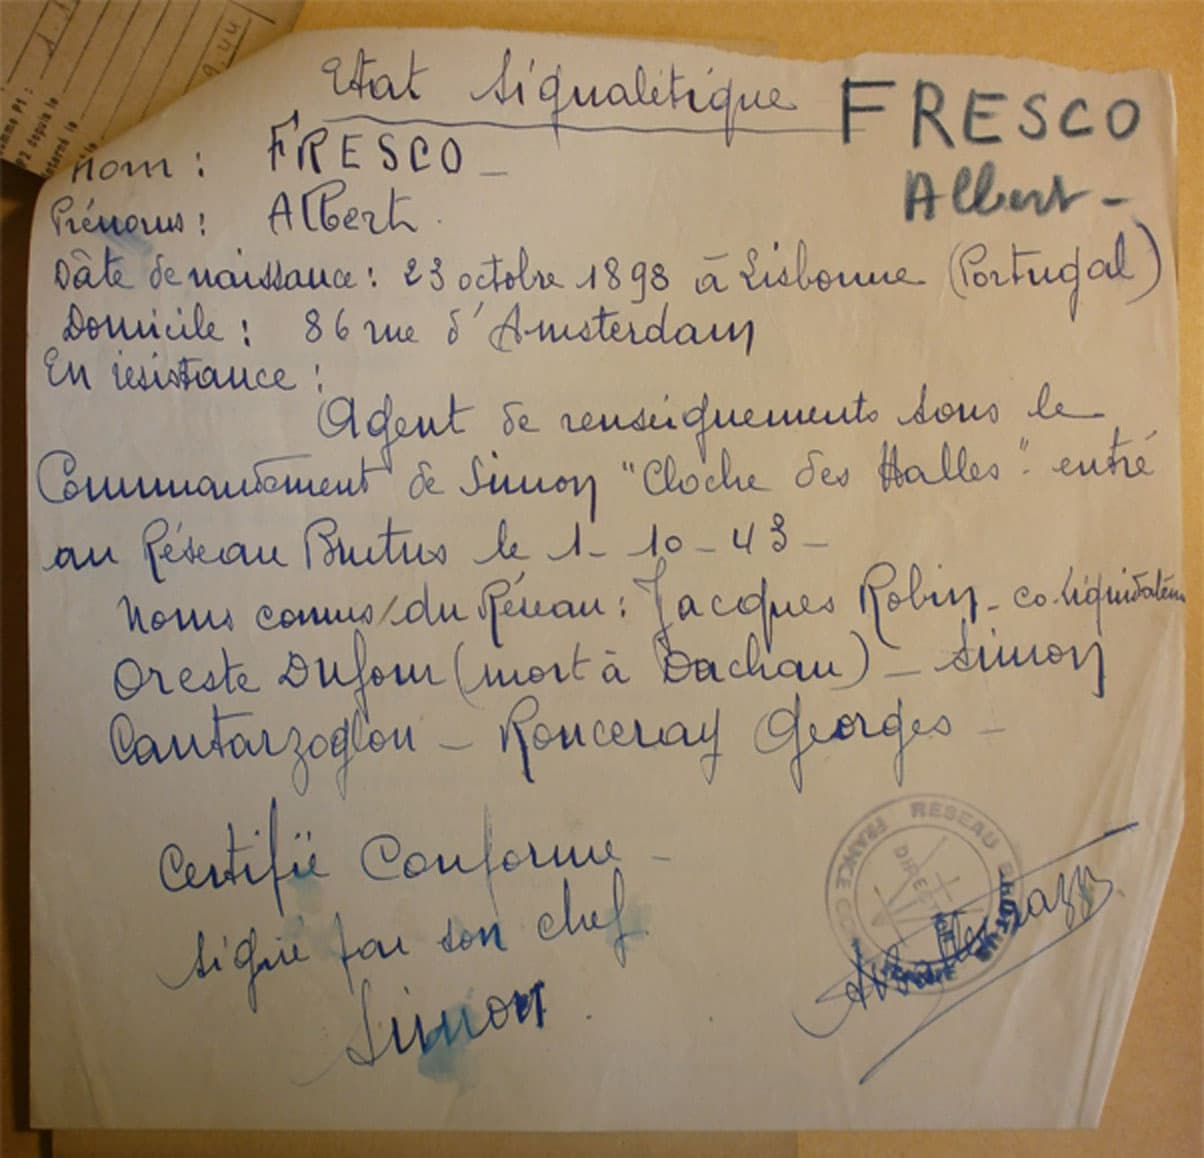 Etat Signalétique
FRESCO
Albert -
Nom : FRESCO -
Prénoms : Albert.
Dâte de naissance : 23 octobre 1898 à Lisbonne (Portugal)
Domicile : 86 rue d'Amsterdam
En résistance :
Agent de renseignements sous le
Commandement de Simon "Cloche des Halles" - entré
au Réseau Brutus le 1 - 10 - 43 -
Noms connus du Réseau : Jacques Robin - co-liquidateur
Oreste Dufour (mort à Dachau) - Simon
Cantarzoglou - Ronceray Georges -
Certifié Conforme -
signé par son chef
Simon.
RESEAU BRUTUS
FRANCE